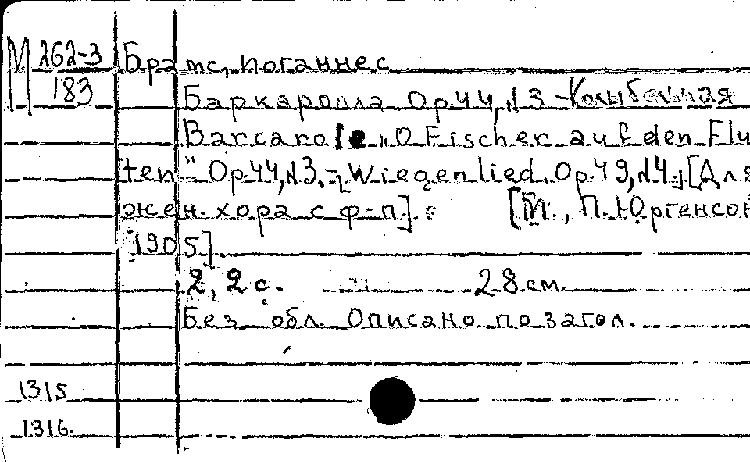 М 262-3 Брамс, Иоганнес
183
Баркаролла Ор 44, N3 - Колыбельная
Barcarole „O Fischer auf den Flu
ten" Op 44, N3. - Wiegenlied. Op. 49, N4. [Для
жен. хора с ф-п].. [М., П. Юргенсон
1905].
2, 2 с. 28 см.
Без обл. Описано по загол.
1315
1316.